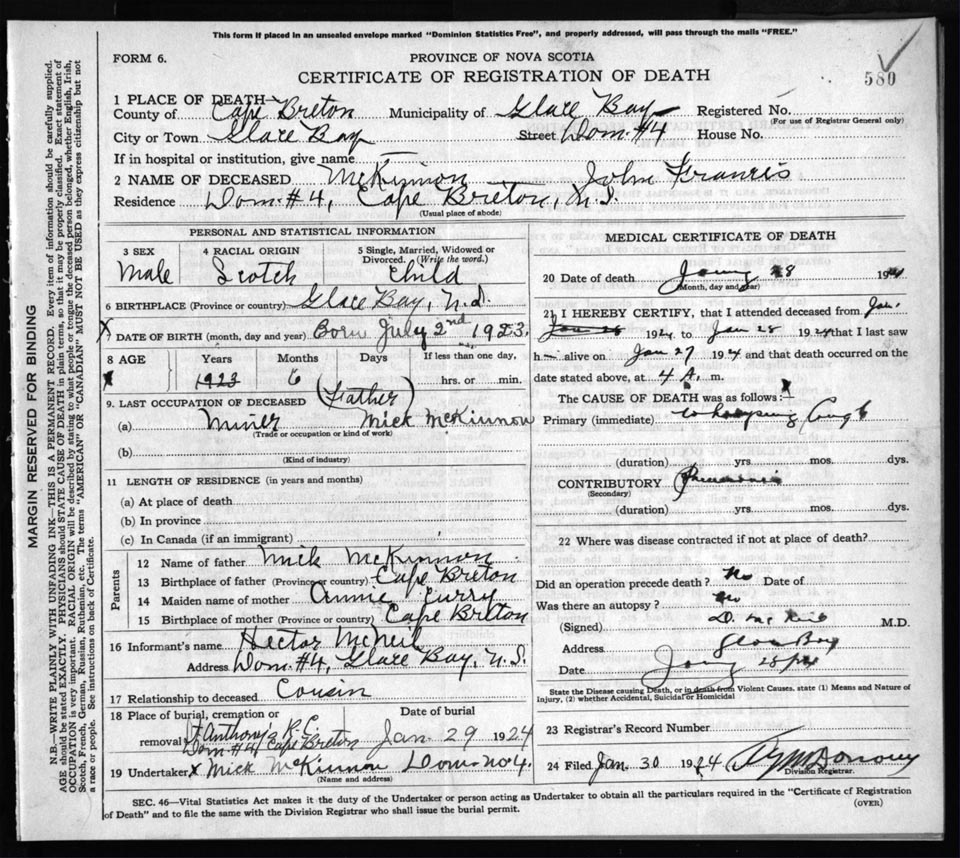 This form if placed in an unsealed envelope marked "Dominion Statistics Free", and properly addressed, will pass through the mails "FREE."
FORM 6.
PROVINCE OF NOVA SCOTIA
CERTIFICATE OF REGISTRATION OF DEATH
580
1 PLACE OF DEATH—
County of Cape Breton Municipality of Glace Bay Registered No.
(For use of Registrar General only)
City or Town Glace Bay Street Dom. #4 House No.
If in hospital or institution, give name
2 NAME OF DECEASED McKinnon John Francis
Residence Dom. #4, Cape Breton, N.S.
(Usual place of abode)
PERSONAL AND STATISTICAL INFORMATION
3 SEX 4 RACIAL ORIGIN 5 Single, Married, Widowed or Divorced. (Write the word.)
Male Scotch Child
6 BIRTHPLACE (Province or country) Glace Bay, N.S.
X DATE OF BIRTH (month, day and year) Born July 2nd 1923.
8 AGE Years Months Days If less than one day,
1923 6 hrs. or min.
(Father)
9. LAST OCCUPATION OF DECEASED
(a) Miner Mick McKinnon
(Trade or occupation or kind of work)
(b)
(Kind of industry)
11 LENGTH OF RESIDENCE (in years and months)
(a) At place of death
(b) In province
(c) In Canada (if an immigrant)
Parents
12 Name of father Mik McKinnon
13 Birthplace of father (Province or country) Cape Breton
14 Maiden name of mother Annie Curry
15 Birthplace of mother (Province or country) Cape Breton
16 Informant's name Hector McNeil
Address Dom. #4, Glace Bay, N.S.
17 Relationship to deceased Cousin
18 Place of burial, cremation or removal Date of burial
St Anthonys R.C.
Dom #4 Cape Breton Jan. 29 1924
19 Undertaker x Mick McKinnon Dom. No 4.
(Name and address)
MEDICAL CERTIFICATE OF DEATH
20 Date of death 28 1924
(Month, day and year)
21 I HEREBY CERTIFY, that I attended deceased from Jan.
1924 to Jan 28 1924 that I last saw
h alive on Jan 27 1924 and that death occurred on the
date stated above, at 4 A. m.
The CAUSE OF DEATH was as follows:
Primary (immediate) whooping Cough
(duration) yrs. mos. dys.
CONTRIBUTORY Pneumonia
(Secondary)
(duration) yrs. mos. dys.
22 Where was disease contracted if not at place of death?
Did an operation precede death? No Date of
Was there an autopsy? No
(Signed) D. McNeil M.D.
Address Glace Bay
Date 28/24
State the Disease causing Death, or in death from Violent Causes, state (1) Means and Nature of Injury, (2) whether Accidental, Suicidal or Homicidal
23 Registrar's Record Number
24 Filed Jan. 30 1924
Division Registrar.
SEC. 46—Vital Statistics Act makes it the duty of the Undertaker or person acting as Undertaker to obtain all the particulars required in the "Certificate of Registration of Death" and to file the same with the Division Registrar who shall issue the burial permit.
(OVER)
MARGIN RESERVED FOR BINDING
N.B.—WRITE PLAINLY WITH UNFADING INK—THIS IS A PERMANENT RECORD. Every item of information should be carefully supplied.
AGE should be stated EXACTLY. PHYSICIANS should STATE CAUSE OF DEATH in plain terms, so that it may be properly classified. Exact statement of
OCCUPATION is very important. RACIAL ORIGIN will be described by stating to what people or tongue the deceased person belonged, whether English, Irish,
Scotch, French, German, Russian, Ruthenian, etc. The terms "AMERICAN" or "CANADIAN" MUST NOT BE USED as they express citizenship but not
a race or people. See instructions on back of Certificate.